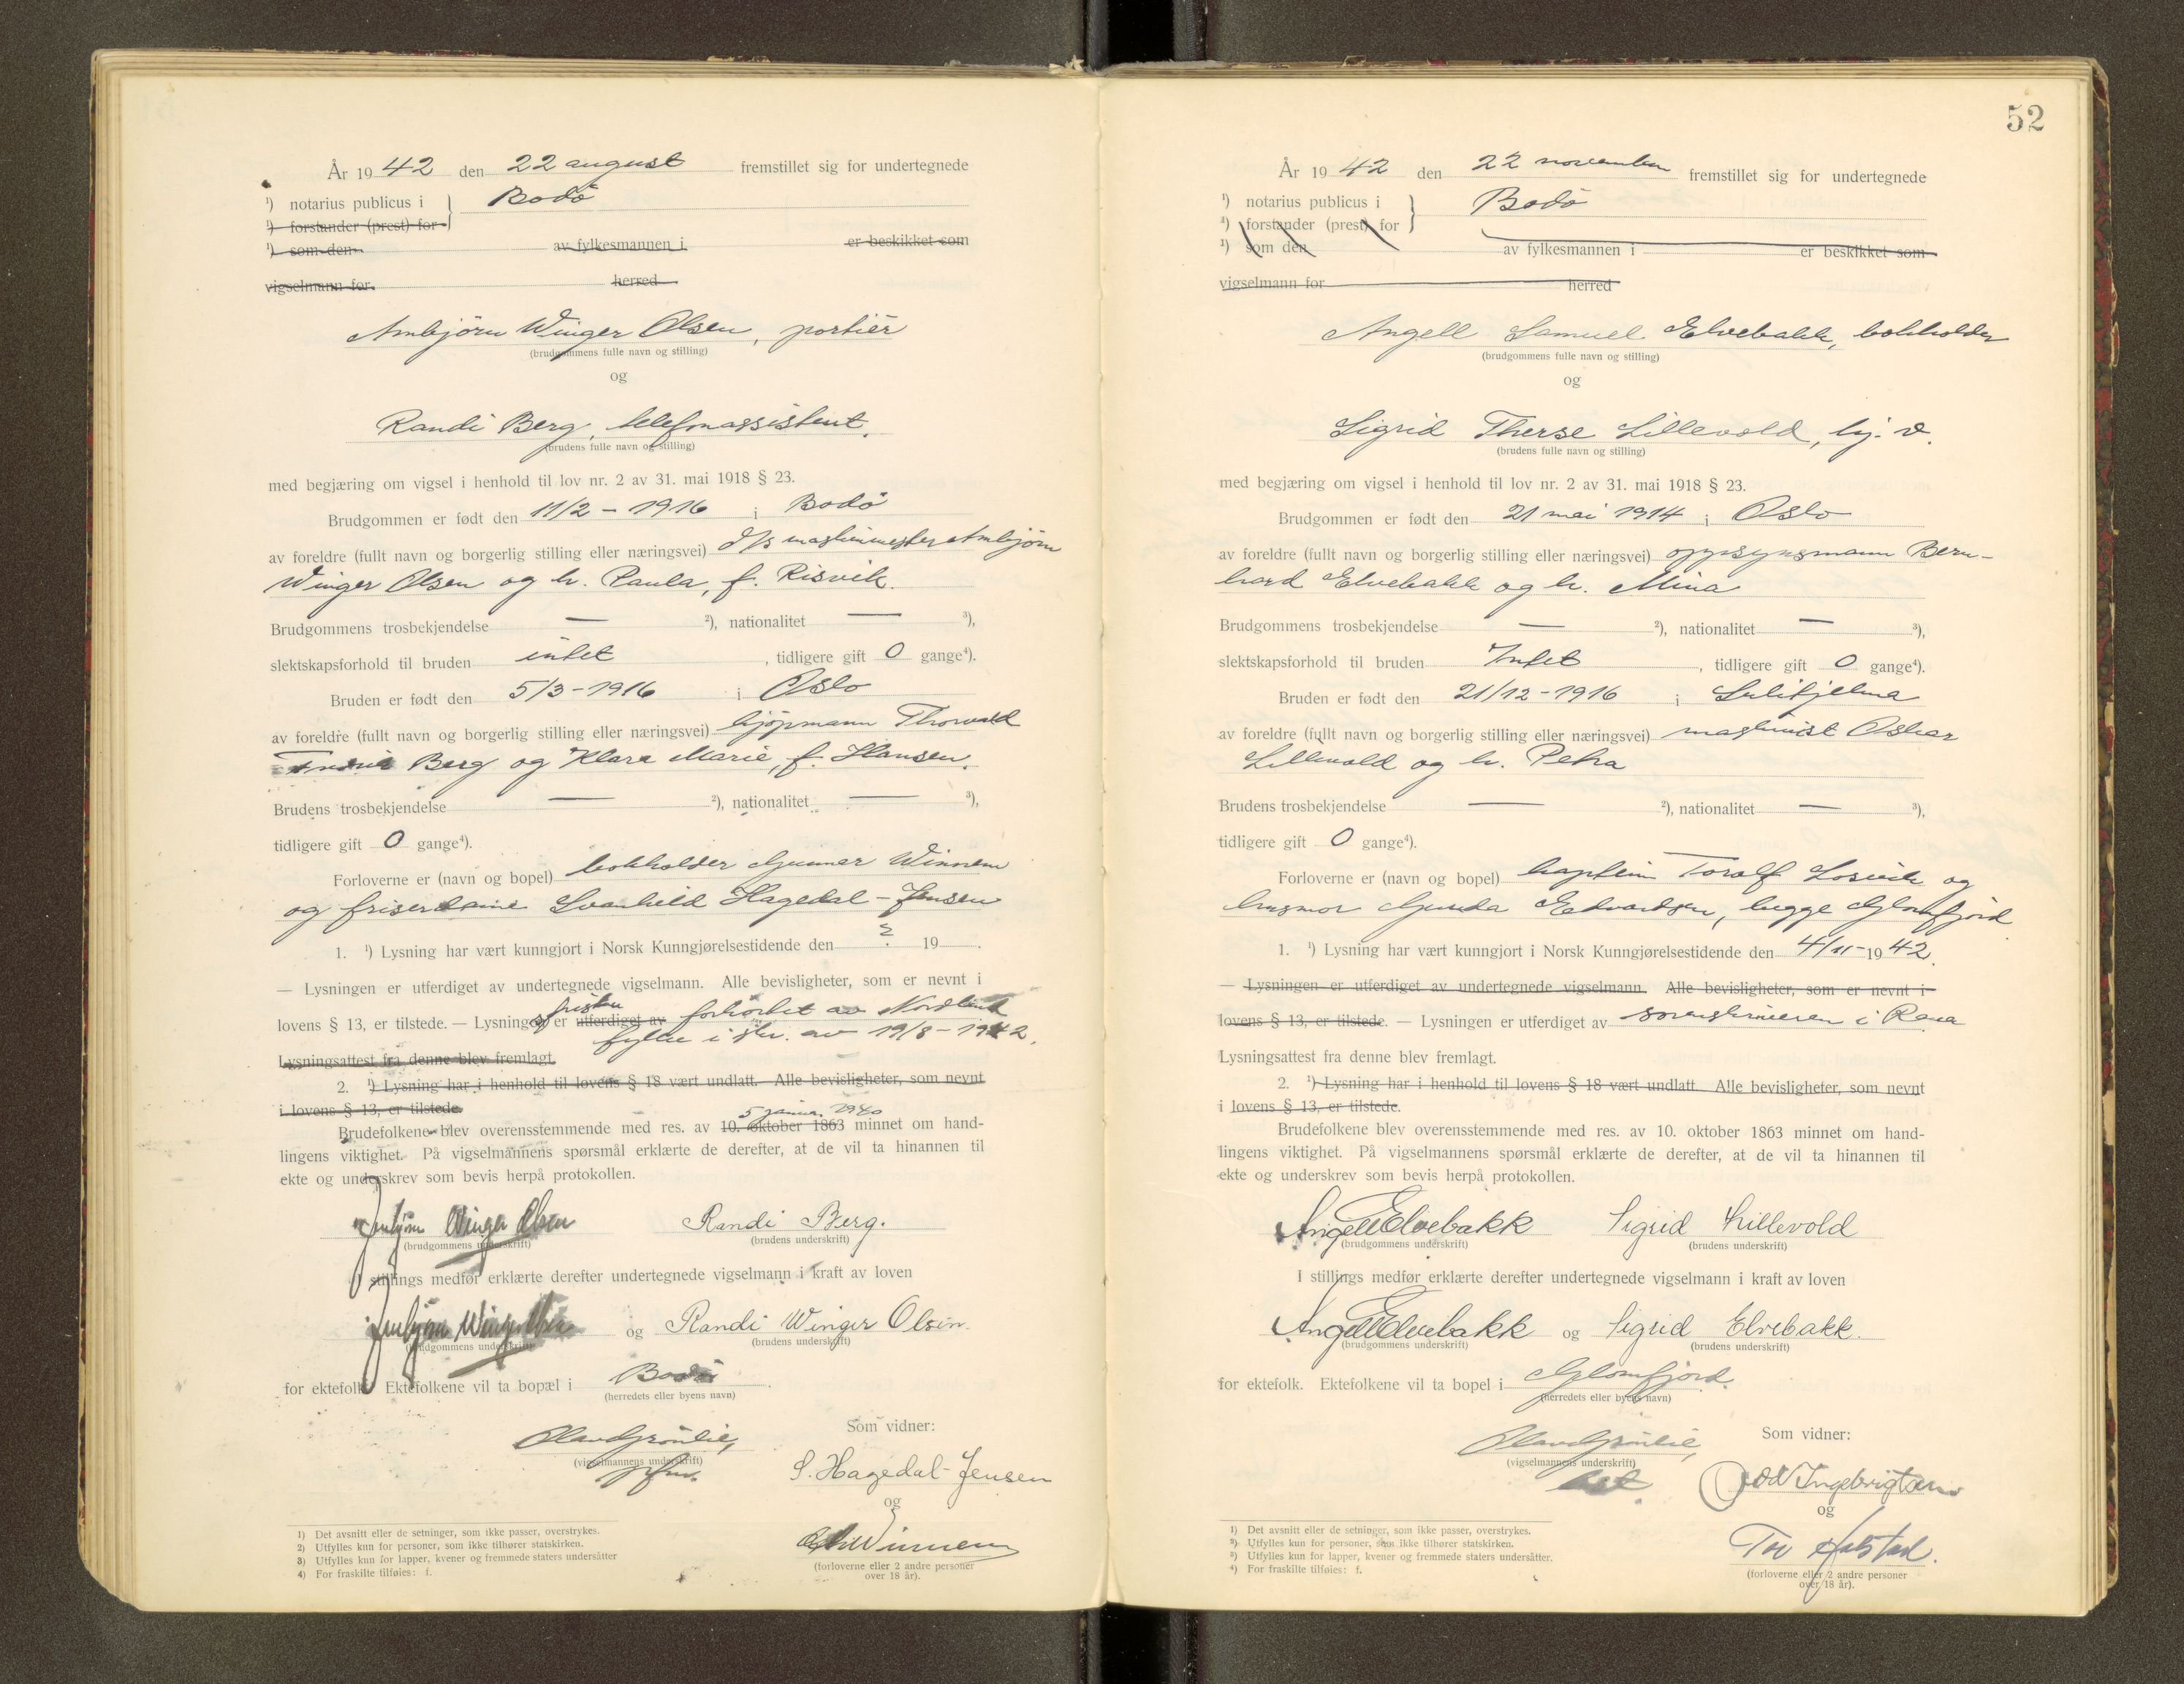 År 1942 den 22 august fremstillet sig for undertegnede
¹) notarius publicus i } Bodö
¹) forstander (prest) for
¹) som den av fylkesmannen i er beskikket som
vigselmann for herred
Arnbjörn Winger Olsen, portiér
(brudgommens fulle navn og stilling)
og
Randi Berg, telefonassistent.
(brudens fulle navn og stilling)
med begjæring om vigsel i henhold til lov nr. 2 av 31. mai 1918 § 23.
Brudgommen er født den 11/2 - 1916 i Bodö
av foreldre (fullt navn og borgerlig stilling eller næringsvei) d/s maskinmester Arnbjörn
Winger Olsen og h. Paula, f. Risvik.
Brudgommens trosbekjendelse — ²), nationalitet — ³),
slektskapsforhold til bruden intet, tidligere gift 0 gange⁴).
Bruden er født den 5/3 - 1916 i Oslo
av foreldre (fullt navn og borgerlig stilling eller næringsvei) kjöpmann Thorvald
Berg og Klara Marie, f. Hansen.
Brudens trosbekjendelse — ²), nationalitet — ³),
tidligere gift 0 gange⁴).
Forloverne er (navn og bopel) bokholder Gunnar Winnem
og friserdame Svanhild Hagedal-Jensen
1. ¹) Lysning har vært kunngjort i Norsk Kunngjørelsestidende den ? 19 .
— Lysningen er utferdiget av undertegnede vigselmann. Alle bevisligheter, som er nevnt i
fristen
lovens § 13, er tilstede. — Lysnings er utferdiget av forkortet av Nordland
fylke i skr. av 19/8 - 1942.
Lysningsattest fra denne blev fremlagt.
2. ¹) Lysning har i henhold til lovens § 18 vært undlatt. Alle bevisligheter, som nevnt
i lovens § 13, er tilstede.
5 januar 1940
Brudefolkene blev overensstemmende med res. av 10. oktober 1863 minnet om hand-
lingens viktighet. På vigselmannens spørsmål erklærte de derefter, at de vil ta hinannen til
ekte og underskrev som bevis herpå protokollen.
Arnbjörn Winger Olsen Randi Berg.
(brudgommens underskrift) (brudens underskrift)
I stillings medfør erklærte derefter undertegnede vigselmann i kraft av loven
Arnbjörn Winger Olsen og Randi Winger Olsen
(brudgommens underskrift) (brudens underskrift)
for ektefolk. Ektefolkene vil ta bopæl i Bodö.
(herredets eller byens navn)
Olav Grönlie, Som vidner:
(vigselmannens underskrift) S. Hagedal-Jensen
og
Winnem
(forloverne eller 2 andre personer
over 18 år).
1) Det avsnitt eller de setninger, som ikke passer, overstrykes.
2) Utfylles kun for personer, som ikke tilhører statskirken.
3) Utfylles kun for lapper, kvener og fremmede staters undersåtter
4) For fraskilte tilføies: f.
52
År 1942 den 22 november fremstillet sig for undertegnede
¹) notarius publicus i } Bodö
¹) forstander (prest) for
¹) som den av fylkesmannen i er beskikket som
vigselmann for herred
Angell Samuel Elvebakk, bokholder
(brudgommens fulle navn og stilling)
og
Sigrid Therse Lillevold, hj. v.
(brudens fulle navn og stilling)
med begjæring om vigsel i henhold til lov nr. 2 av 31. mai 1918 § 23.
Brudgommen er født den 21 mai 1914 i Oslo
av foreldre (fullt navn og borgerlig stilling eller næringsvei) oppsynsmann Bern-
hard Elvebakk og h. Mina
Brudgommens trosbekjendelse — ²), nationalitet — ³),
slektskapsforhold til bruden Intet, tidligere gift 0 gange⁴).
Bruden er født den 21/12 - 1916 i Sulitjelma
av foreldre (fullt navn og borgerlig stilling eller næringsvei) maskinist Oskar
Lillevold og h. Petra
Brudens trosbekjendelse — ²), nationalitet — ³),
tidligere gift 0 gange⁴).
Forloverne er (navn og bopel) kaptein Toralf Losvik og
husmor Gunda Edvardsen, begge Glomfjord
1. ¹) Lysning har vært kunngjort i Norsk Kunngjørelsestidende den 4/11 - 1942.
— Lysningen er utferdiget av undertegnede vigselmann. Alle bevisligheter, som er nevnt i
lovens § 13, er tilstede. — Lysningen er utferdiget av sorenskriveren i Rana
Lysningsattest fra denne blev fremlagt.
2. ¹) Lysning har i henhold til lovens § 18 vært undlatt. Alle bevisligheter, som nevnt
i lovens § 13, er tilstede.
Brudefolkene blev overensstemmende med res. av 10. oktober 1863 minnet om hand-
lingens viktighet. På vigselmannens spørsmål erklærte de derefter, at de vil ta hinannen til
ekte og underskrev som bevis herpå protokollen.
Angell Elvebakk Sigrid Lillevold
(brudgommens underskrift) (brudens underskrift)
I stillings medfør erklærte derefter undertegnede vigselmann i kraft av loven
Angell Elvebakk og Sigrid Elvebakk.
(brudgommens underskrift) (brudens underskrift)
for ektefolk. Ektefolkene vil ta bopel i Glomfjord.
(herredets eller byens navn)
Olav Grönlie, Som vidner:
(vigselmannens underskrift) Odd Ingebrigtsen
og
Tor
(forloverne eller 2 andre personer
over 18 år).
¹) Det avsnitt eller de setninger, som ikke passer, overstrykes.
²) Utfylles kun for personer, som ikke tilhører statskirken.
³) Utfylles kun for lapper, kvener og fremmede staters undersåtter.
⁴) For fraskilte tilføies: f.